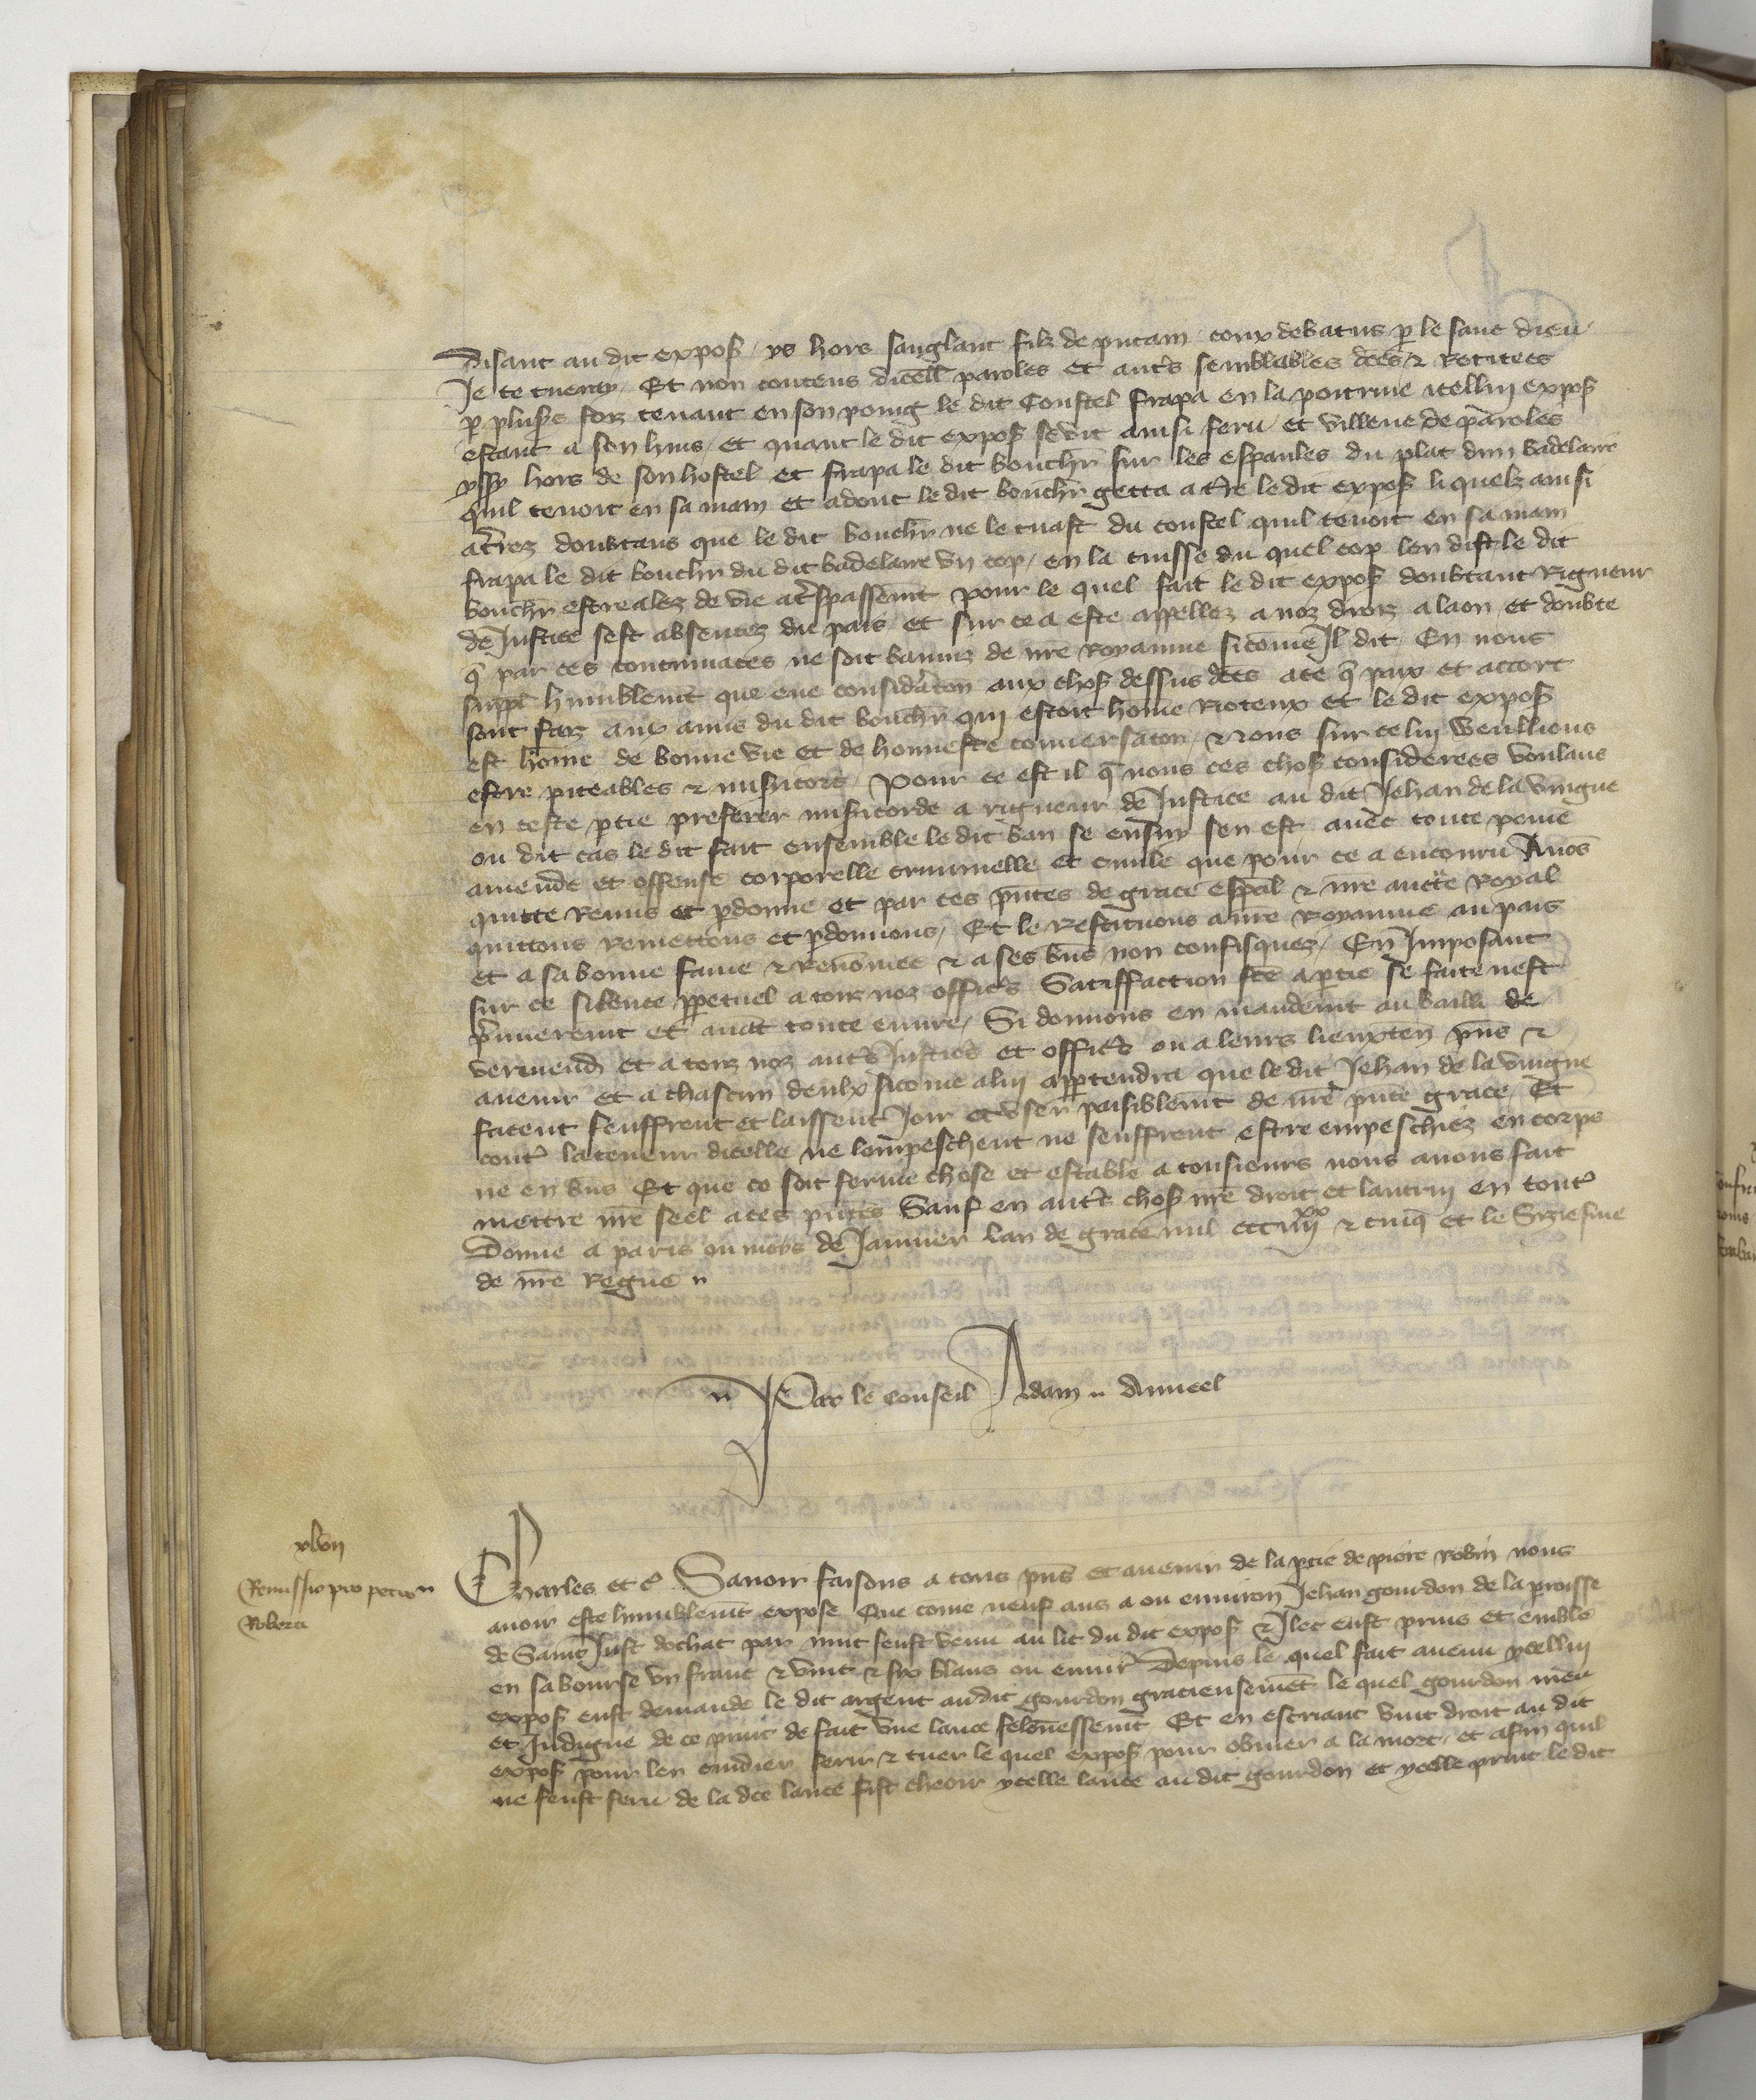 disant au dit expos ys hors sanglant filz de putain coux debatus p le sanc dieu
Je te tueray Et non contens dicell paroles et autrs semblables dces & Recitees
p pluss foiz tenant en son poing le dit Coustel frapa en la poitrine icellui expos
estant a son huis et quant le dit expos se vit ainsi feru et villene de paroles
yssy hors de son hostel et frapa le dit bouchr sur les espaules du plat dun badelaire
quil tenoit en sa main et adonc le dit bouchr getta a tre le dit expos li quelz ainsi
atrrez doubtans que le dit bouchr ne le tuast du coustel quil tenoit en sa main
frapa le dit bouchr du dit badelaire un cop en la cuisse du quel cop len dist le dit
bouchr estre alez de vie a trspassemt pour le quel fait le dit expos doubtant Rigueur
de Justice sest absentez du pais et sur ce a este appellez a noz droiz a laon et doubte
q par ces contumaces ne soit banniz de nre Royaume si come Il dit En nous
suppl humblemt que eue considraton aux chos dessus dces a ce q paix et accort
sont faiz aux amis du dit bouchr qui estoit home Rioteux et le dit expos
est home de bonne vie et de honneste conversaton Nous sur ce lui Weullions
estre piteables & misicors Pour ce est il q nous ces chos considerees voulans
en ceste ptie preferer misicorde a rigueur de Justice au dit Jehan de la vingne
ou dit cas le dit fait ensemble le dit ban se ensuy sen est avec toute peine
amende et offense corporelle criminelle et civile que pour ce a encouru Avos
quitte Remis et pdonne et par ces pntes de grace espal & nre aucte Royal
quittons remettons et pdonnons Et le Restituons a nre Royaume au pais
et a sa bonne fame & Renomee & a ses bns non confisquez En Imposant
sur ce silence ppetuel a touz noz officrs Satiffaction fce a ptie se faite nest
prmieremt et avat toute euvre Si donnons en mandemt au bailli de
vermend et a touz noz autrs Justicrs et officrs ou a leurs lieuxten pns &
avenir et a chascun deulx sicome a lui appartendra que le dit Jehan de la vingne
facent seuffrent et laissent Joir et user paisiblemt de nre pnte grace Et
contr la teneur dicelle ne lempeschent ne seuffrent estre empeschiez en corps
ne en bns Et que ce soit ferme chose et estable a tousiours nous avons fait
mettre nre seel a ces pntes Sauf en autrs chos nre droit et lautrui en toutr
Donne a paris ou moys de Janvier lan de grace mil ccciiiixx & cinq et le Siziesme
de nre Regne
Par le conseil Adam Anneel
xlvii
Remissio pro petro
Roberti
Charles etc Savoir faisons a tous pns et avenir de la ptie de pierre robin nous
avoir este humblemt expose Que come neuf ans a ou environ Jehan gourdon de la proisse
de Saint Just dochat par nuit feust venu au lit du dit expos & Ilec eust prins et emble
en sa bourse un franc & vint & six blans ou environ Depuis le quel fait avenu ycellui
expos eust demande le dit argent audit gourdon gracieusemet le quel gourdon meu
et Indigne de ce print de fait une lance felonessemt Et en escriant vint droit au dit
expos pour len cuidier ferir & tuer le quel expos pour obvier a la mort et afin quil
ne feust feru de la dce lance fist cheoir ycelle lance au dit gourdon et ycelle print le dit